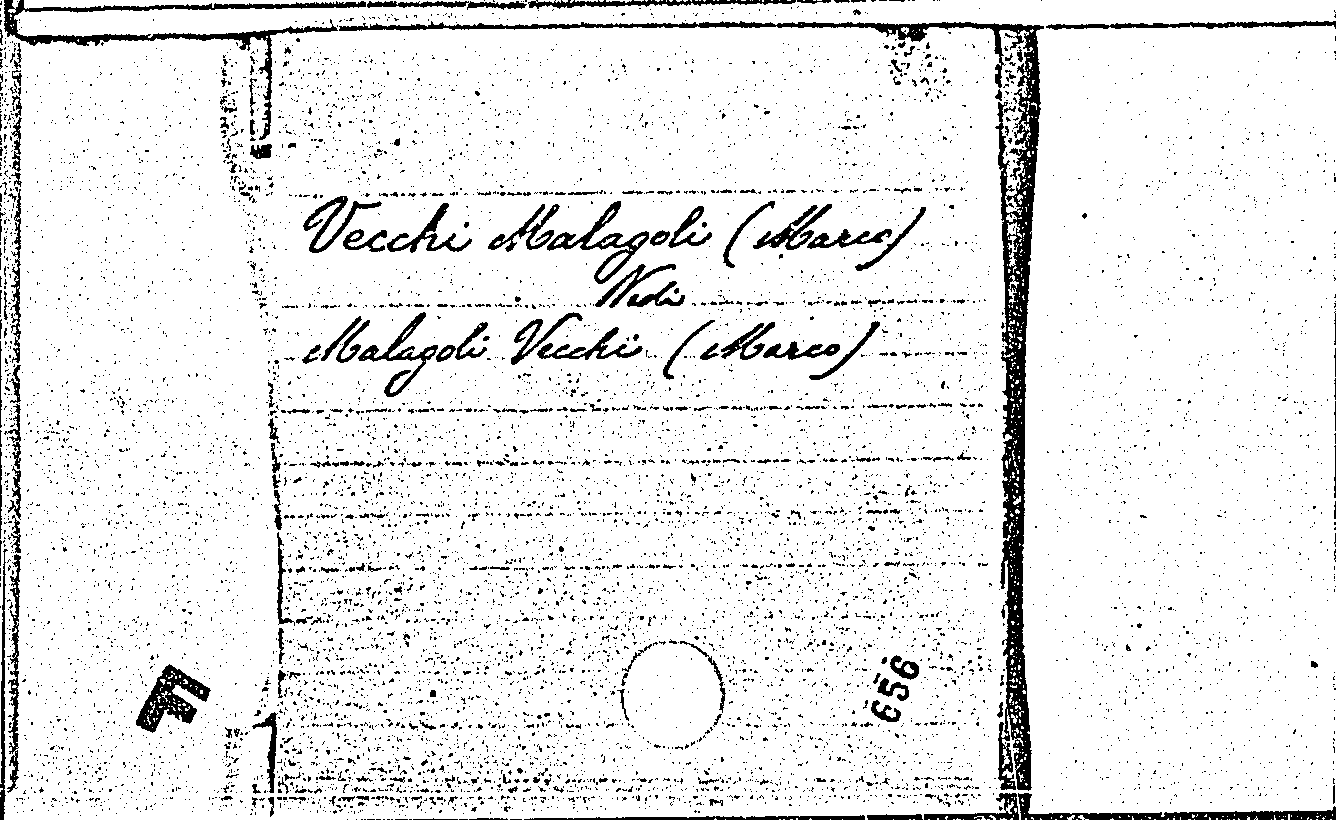 Vecchi Malagoli (Marco)
Vedi
Malagoli Vecchi (Marco)
656
F